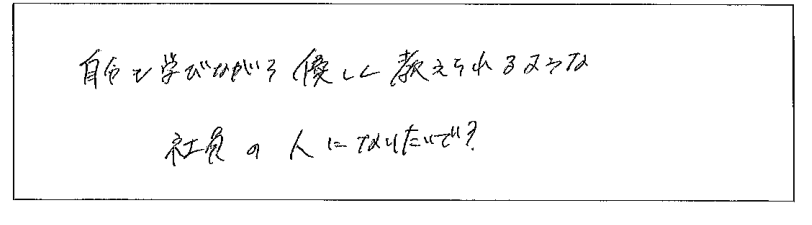 自分も学びながら優しく教えられるような
社員の人になりたいです